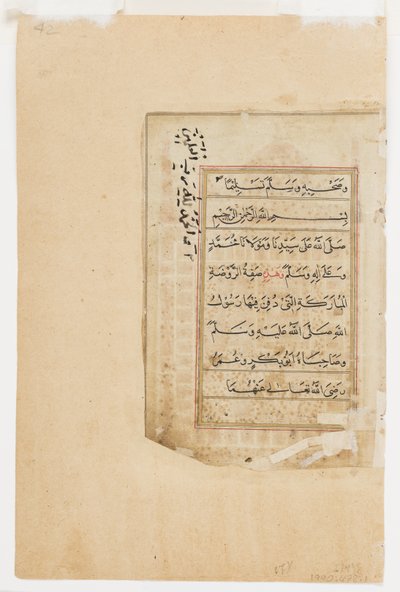 وَصَحْبِهِ وَسَلَّمَ تَسْلِيْمًا
بِسْمِ اللهِ الرَّحْمٰنِ الرَّحِيْمِ
صَلَّى اللهُ عَلَى سَيِّدِنَا وَمَوْلَانَا مُحَمَّدٍ
وَعَلَى اٰلِهِ وَسَلَّمَ وَهٰذِهِ صِفَةُ الرَّوْضَةِ
المُبَارَكَةِ الَّتِيْ دُفِنَ فِيْهَا رَسُوْلُ
اللهِ صَلَّى اللهُ عَلَيْهِ وَسَلَّمَ
وَصَاحِبَاهُ اَبُوْ بَكْرٍ وَعُمَرُ
رَضِيَ اللهُ تَعَالٰى عَنْهُمَا
الحمد لله رب العلمين
42